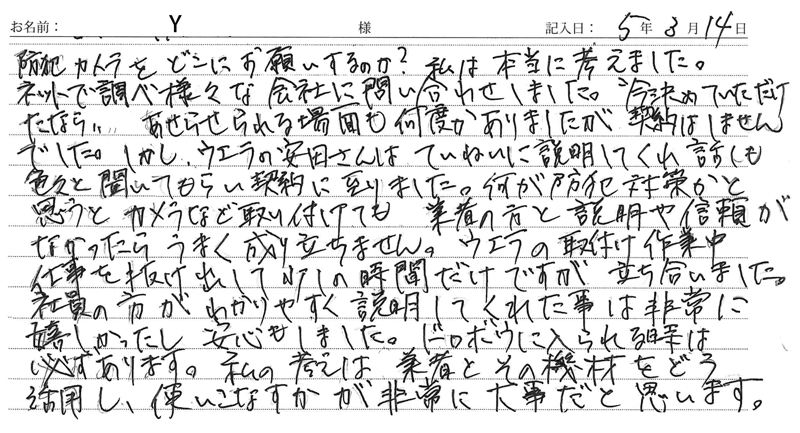 お名前： Y 様 記入日： 5年 3月 14日
防犯カメラをどこにお願いするのか？ 私は本当に考えました。
ネットで調べ様々な会社に問い合わせしました。今決めていただけ
たなら、、 あせらせられる場面も何度かありましたが 契約はしません
でした。しかし、ウエラの安田さんは ていねいに説明してくれ 話しも
色々と聞いてもらい契約に至りました。何が防犯対策かと
思うと カメラなど取り付けても 業者の方と説明や信頼が
なかったら うまく成り立ちません。 ウエラの取付け作業中
仕事を抜け出して 少しの時間だけですが 立ち合いました。
社員の方がわかりやすく説明してくれた事は非常に
嬉しかったし 安心もしました。ドロボウに入られる時は
必ずあります。私の考えは 業者とその機材をどう
活用し、使いこなすかが非常に大事だと思います。